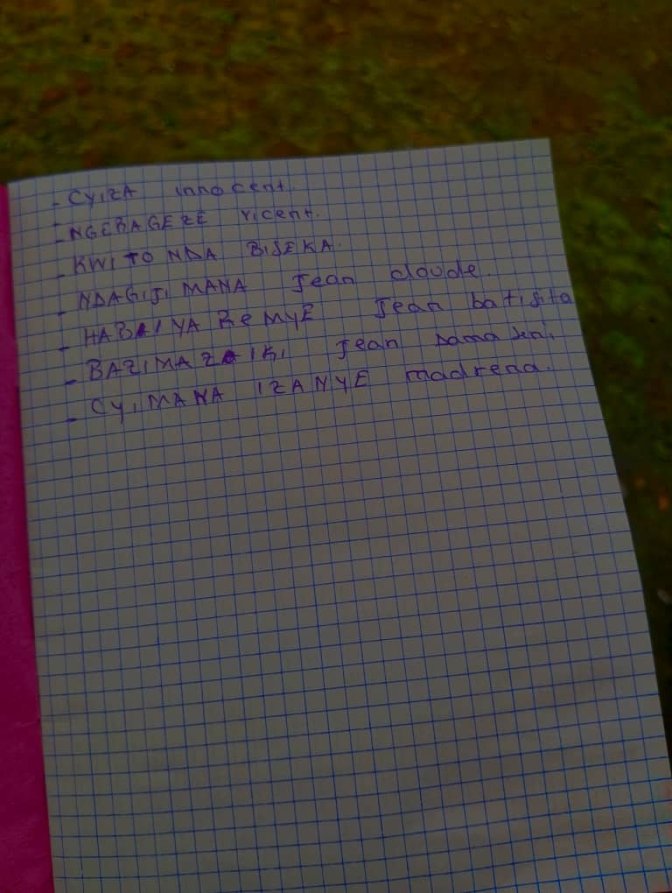 - CYIZA innocent.
- NGEBAGEZE vicent.
- KWITONDA BISEKA.
- NDAGIJIMANA Jean cloude.
- HABAIYAREMYE Jean batisita
- BAZIMAZAIKI Jean
- CYIMANA IZANYE madrena.